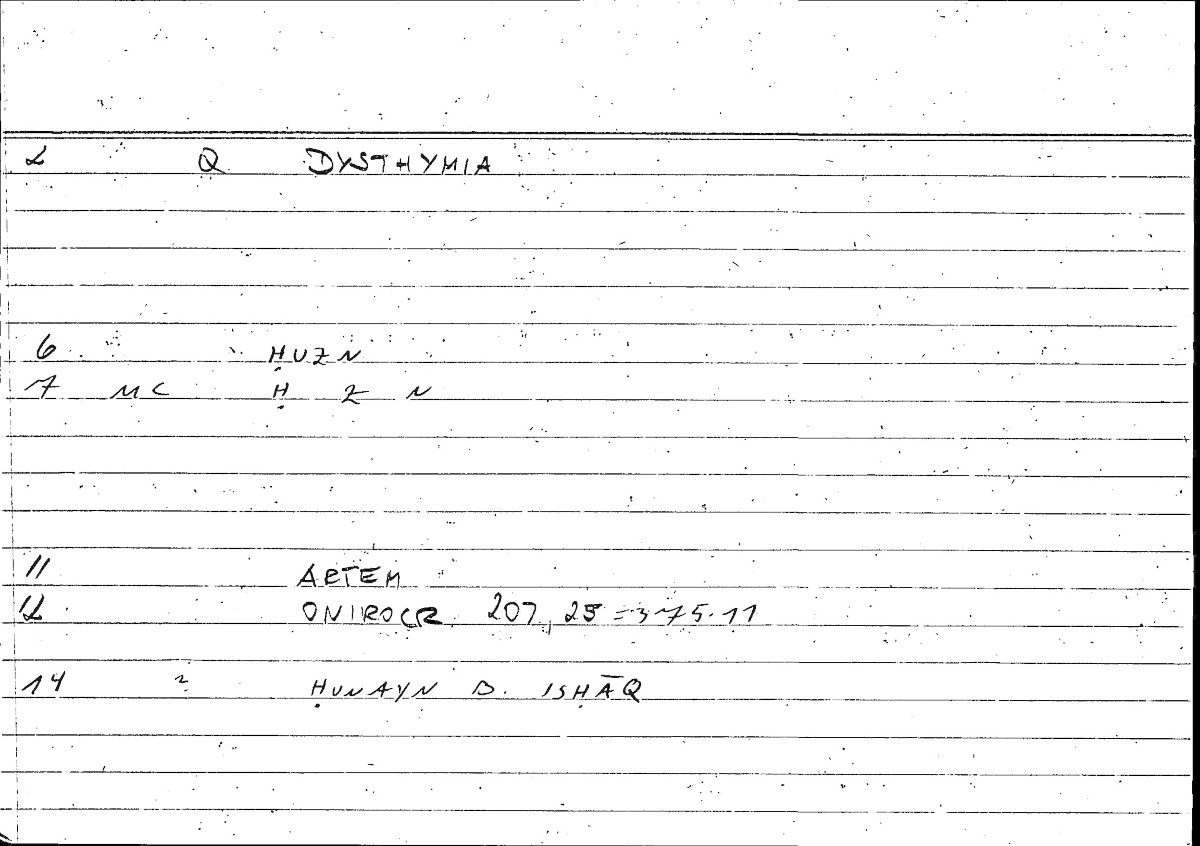 2 Q DYSTHYMIA
6 ḤUZN
7 MC Ḥ Z N
11 ARTEM
12 ONIROCR. 207,25 = 375.11
14 ? ḤUNAYN B. ISḤĀQ